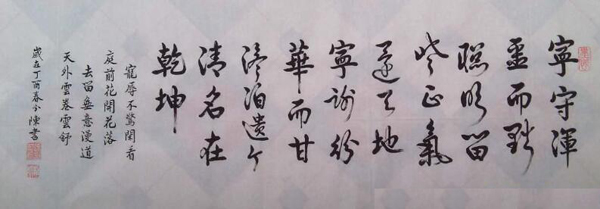 寧守渾
噩而黜
聰明留
些正氣
還天地
寧謝紛
華而甘
澹泊遺个
清名在
乾坤
寵辱不驚閑看
庭前花開花落
去留無意漫道
天外雲卷雲舒
歲在丁酉春分陳書